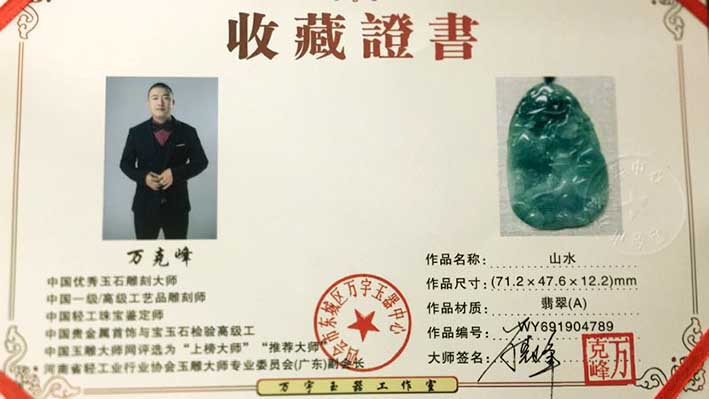 收藏證書
万克峰
中国优秀玉石雕刻大师
中国一级/高级工艺品雕刻师
中国轻工珠宝鉴定师
中国贵金属首饰与宝玉石检验高级工
中国玉雕大师网评选为“上榜大师”“推荐大师”
河南省轻工业行业协会玉雕大师专业委员会(广东)副会长
作品名称：山水
作品尺寸：(71.2×47.6×12.2)mm
作品材质：翡翠(A)
作品编号：WY691904789
大师签名：
万克峰
市东城区万字玉器中心
万字玉器工作室